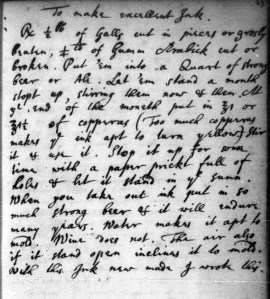 To make excellent Ink.
℞ ½ lb of Galls cut in pieces or grosly
beaten, ¼ lb of Gumm Arabick cut or
broken. Put 'em into a Quart of strong
beer or Ale. Let 'em stand a month
stopt up, stirring them now & then. At
ye end of the month put in ℥1 or
℥1½ of copperas (Too much copperas
makes ye ink apt to turn yellow) Stir
it & use it. Stop it up for some
time with a paper prickt full of
holes & let it stand in ye sunn.
When you take out ink put in so
much strong beer & it will endure
many years. Water makes it apt to
mold. Wine does not. The air also
if it stand open inclines it to mold.
With this Ink new made I wrote this.